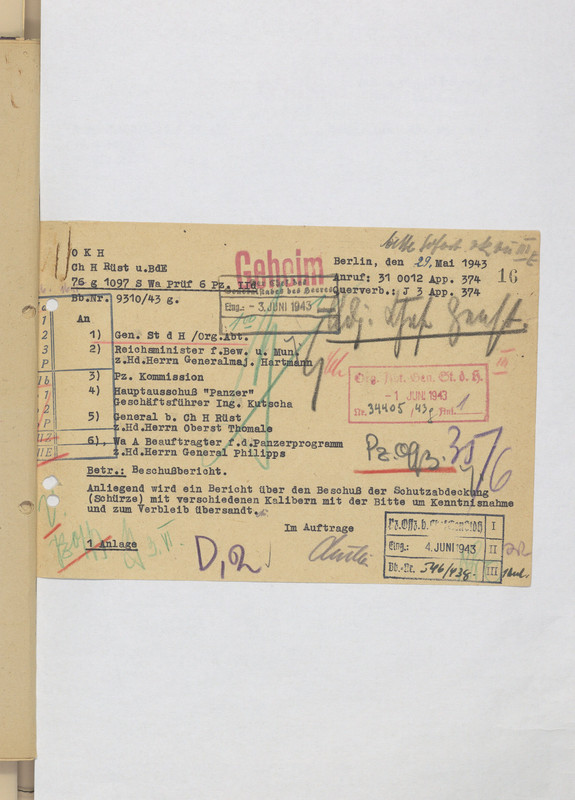 O K H
Ch H Rüst u.BdE
76 g 1097 S Wa Prüf 6 Pz. IId
Bb.Nr. 9310/43 g.
Geheim
Berlin, den 29. Mai 1943
Anruf: 31 0012 App. 374
Querverb.: J 3 App. 374
16
Eing.: - 3. JUNI 1943
An
1) Gen. St d H /Org.Abt.
2) Reichsminister f.Bew. u. Mun.
z.Hd.Herrn Generalmaj. Hartmann
3) Pz. Kommission
4) Hauptausschuß "Panzer"
Geschäftsführer Ing. Kutscha
5) General b. Ch H Rüst
z.Hd.Herrn Oberst Thomale
6) Wa A Beauftragter f.d.Panzerprogramm
z.Hd.Herrn General Philipps
Org. Abt. Gen. St. d. H.
- 1. JUNI 1943
Nr. 34405/43g Anl. 1
Pz.Offz.
Betr.: Beschußbericht.
Anliegend wird ein Bericht über den Beschuß der Schutzabdeckung
(Schürze) mit verschiedenen Kalibern mit der Bitte um Kenntnisnahme
und zum Verbleib übersandt.
Im Auftrage
1 Anlage
Pz.Offz.b.Chef GenStdH I
Eing.: 4. JUNI 1943 II
Bb.-Nr. 546/43g. III